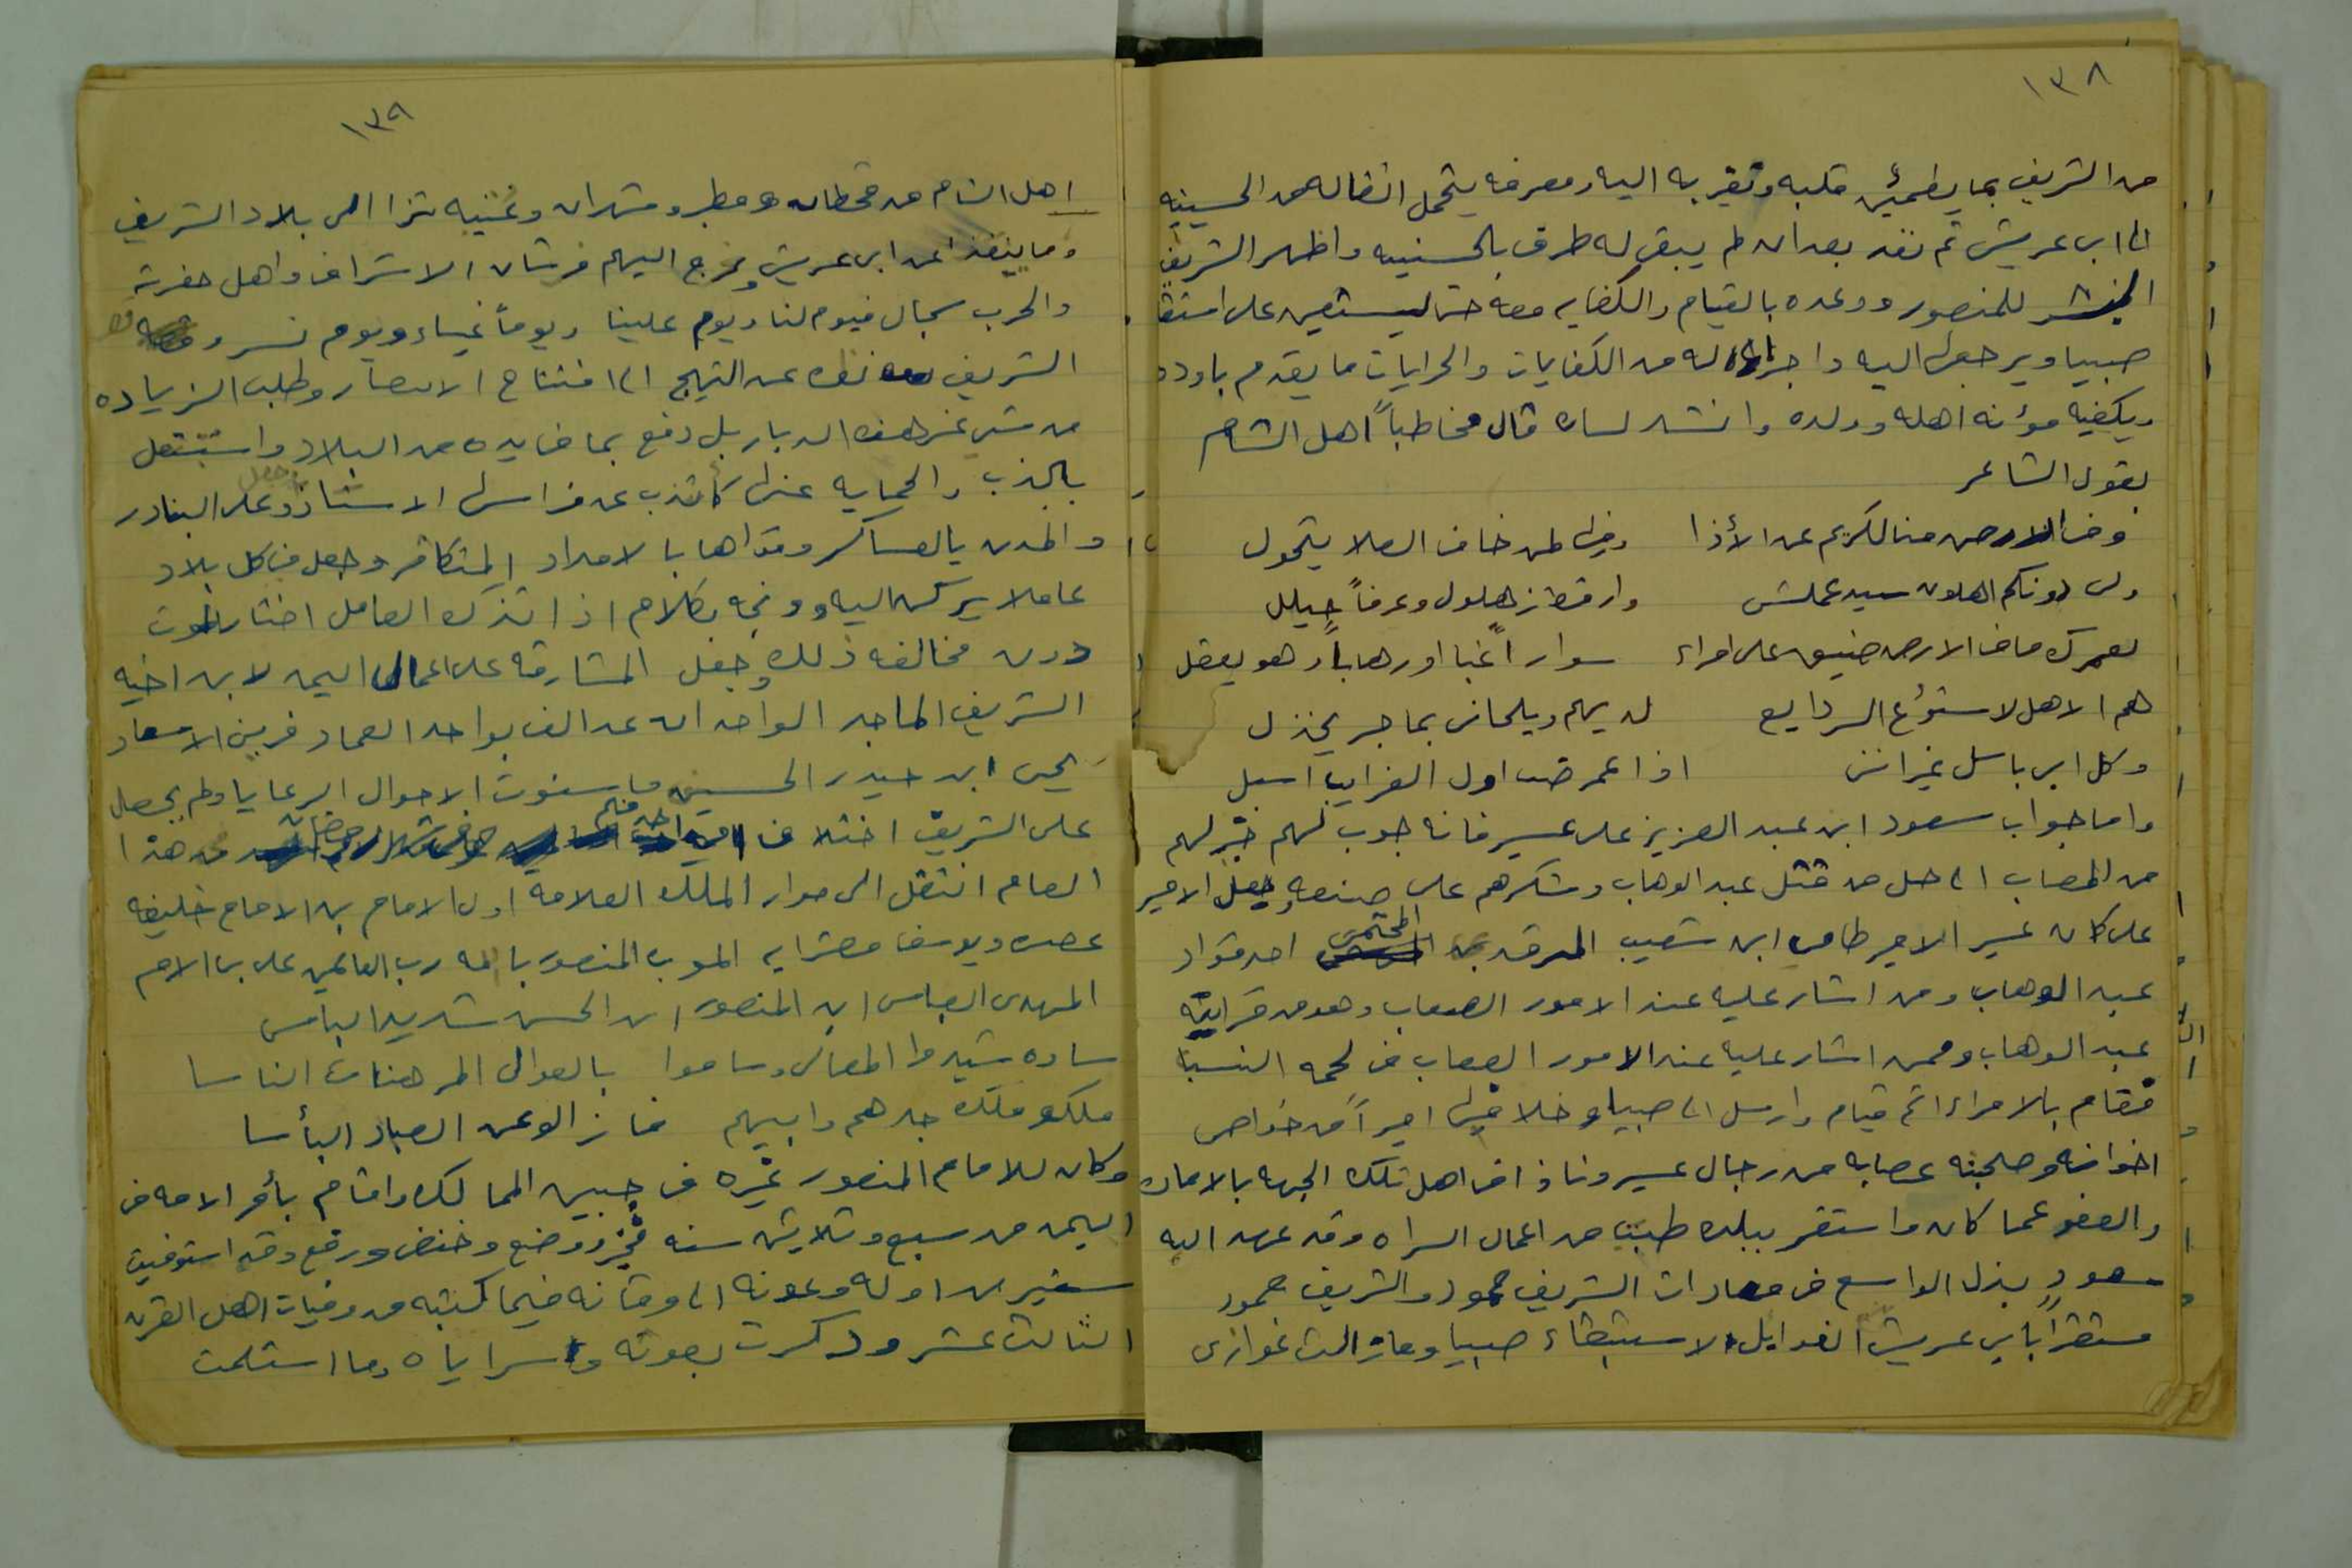 ١٣٨
من الشريف بما يطمئن قلبه وتقر به اليه ومعرفه يتحمل انتقاله من الحسينيه
الى ابى عريش ثم نفد بعد ان لم يبق له طرف بالحسينيه واظهر الشريف
للمنصور ووعده بالقيام والكفايه معه حتى يستعين على
صبيا ويرجعها اليه واجرا له من الكفايات والجرايات ما يقدم باوده
ويكفيه مؤنه اهله وولده وانشد لسان قال مخاطباً اهل الشام
بقول الشاعر
وفى الارض منا لكريم عن الأذا وفيها لمن خاف العلا يتحول
ولى دونكم اهلون سيد عملس وارقط زهلول وعرفاً جيلل
لعمرك ما فى الارض ضيق على امراء سوار اغبا اورهاباً وهو يعقل
هم الاهل لا ستودع السر دايع لديهم ويلحانى بما جر يخذل
وكل ابى باسل غير اننى اذا عرضت اول الغرايب ابسل
واما جواب سعود ابن عبد العزيز على عسير فانه جوب لهم خبر لهم
من المصاب الى حل من قتل عبد الوهاب وشكرهم على صنعه وجعل الامير
على كان عسير الامير طامى ابن شعيب المرقد بن المحتمى احد قواد
عبد الوهاب ومن اشار عليه عند الامور الصعاب وهو من قرابته
عبد الوهاب وممن اشار عليه عند الامور الصعاب فى لحمه النسبا
فقام بالامراء اتم قيام وارسل الى صبيا وخلا فيها اميراً من خواص
اخوانه وصحبته عصابه من رجال عسير ونادا فى اهل تلك الجهه بالامان
والعفو عما كان واستقر ببلده طبب من اعمال السراه وقد عهد اليه
سعود بذل الواسع فى معادات الشريف حمود والشريف حمود
مستقراً بابى عريش الفدايل لاستبقاء صبيا ومازالت غوازى
١٣٩
اهل الشام من قحطان ومطير وشهران وغنيه تترا الى بلاد الشريف
وما ينفذ الى ابى عريش ويخرج اليهم فرسان الاشراف واهل حضرته
والحرب سجال فيوم لنا ويوم علينا ويوماً نساء ويوم نسر و
الشريف نفه عن التهيج الى افتتاح الامصار وطلب الزياده
من شى غير هذه الديار بل دفع بما فى يده من البلاد واشتغل
بالذب والحمايه عنها كما تذب عن فراسها الاستاذ وجعل على البنادر
والمدن بالعساكر وقواها بالامداد المتكاثر وجعل فى كل بلاد
عاملا يركن اليه ووبخه بكلام اذا تذكره العامل اختار الموت
دون مخالفه ذلك وجعل المشارقه على اعمال اليمن لابن اخيه
الشريف الماجد الواحد ان عد الف بواحد العماد فريق الامعاد
يحيى ابن حيدر الحسينى ماسنوت الاحوال الرعايا ولم يحصل
على الشريف اختلاف من احد منهم وفى شهر رمضان من هذا
العام انتقل الى جوار الملك العلامه اول الامام بن الامام خليفه
عصره ويوسف مصرايه المؤيد المنصور بالله رب العالمين على بن الامام
المهدى العباس ابن المنصور ابن الحسن شديد الباس
ساده شيدوا المعالى وساموا بالعوالى المرهفات الناسا
ملكو ملك جدهم وابيهم فازالو عن العباد البأسا
وكان للامام المنصور غره فى جبين الممالك واقام بأمر الامه فى
اليمن من سبع وثلاثين سنه فجزر ووضع وخفض ورفع وقد استوفيت
سنين من اوله وعونه الى وفاته فيما كتبته من وفيات اهل القرن
الثالث عشر وذكرت بعوثه وسراياه وما استلمت